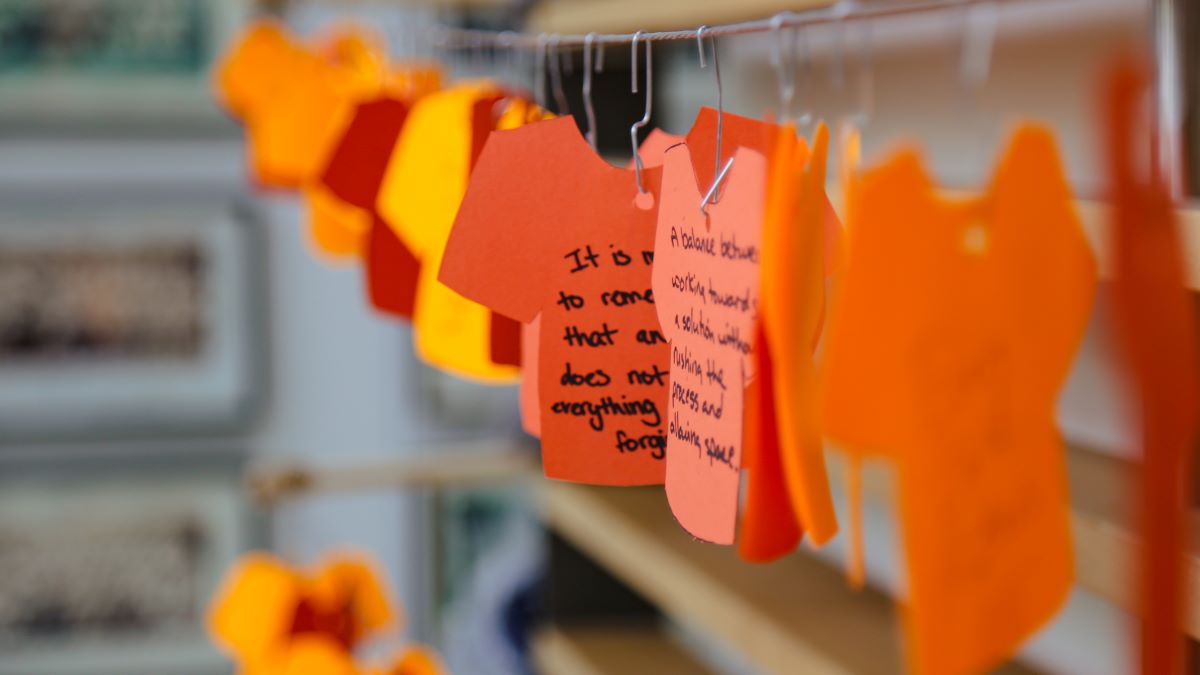 It is
to reme
that an
does not
everything
forgi
A balance betwee
working towards
a solution withou
rushing the
process and
allowing space.